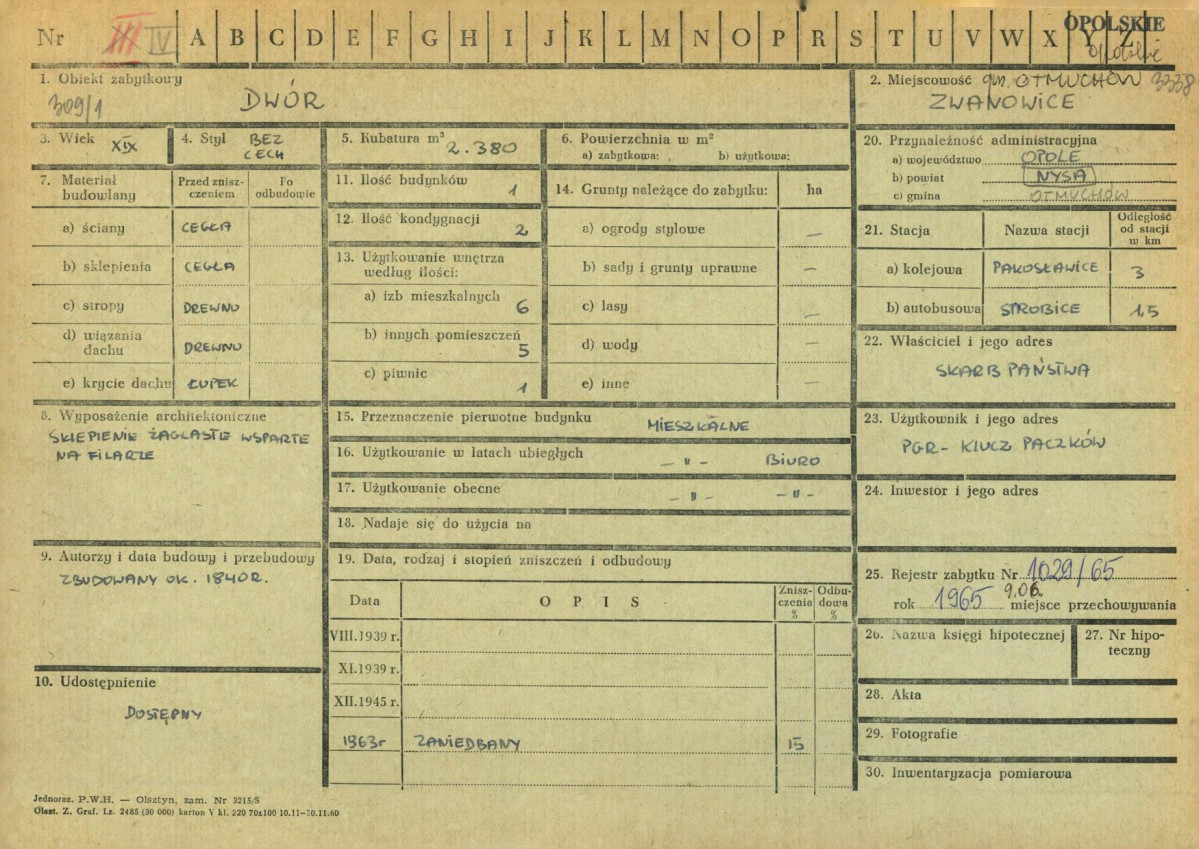 Nr III IV A B C D E F G H I J K L M N O P R S T U V W X Y Z
OPOLSKIE
opolskie
1. Obiekt zabytkowy
309/1
DWÓR
2. Miejscowość gm. OTMUCHÓW 3338
ZWANOWICE
3. Wiek XIX
4. Styl BEZ
CECH
5. Kubatura m³ 2.380
6. Powierzchnia w m²
a) zabytkowa: b) użytkowa:
7. Materiał
budowlany
Przed znisz-
czeniem
Po
odbudowie
a) ściany CEGŁA
b) sklepienia CEGŁA
c) stropy DREWNO
d) wiązania
dachu DREWNO
e) krycie dachu ŁUPEK
8. Wyposażenie architektoniczne
SKLEPIENIE ŻAGLASTE WSPARTE
NA FILARZE
9. Autorzy i data budowy i przebudowy
ZBUDOWANY OK. 1840R.
10. Udostępnienie
DOSTĘPNY
11. Ilość budynków 1
12. Ilość kondygnacji 2
13. Użytkowanie wnętrza
według ilości:
a) izb mieszkalnych 6
b) innych pomieszczeń 5
c) piwnic 1
14. Grunty należące do zabytku: ha
a) ogrody stylowe —
b) sady i grunty uprawne —
c) lasy —
d) wody —
e) inne —
15. Przeznaczenie pierwotne budynku MIESZKALNE
16. Użytkowanie w latach ubiegłych — " — BIURO
17. Użytkowanie obecne — " — — " —
18. Nadaje się do użycia na
19. Data, rodzaj i stopień zniszczeń i odbudowy
Data OPIS Znisz-
czenia
% Odbu-
dowa
%
VIII.1939 r.
XI.1939 r.
XII.1945 r.
1963r ZANIEDBANY 15
20. Przynależność administracyjna
a) województwo OPOLE
b) powiat NYSA
c) gmina OTMUCHÓW
21. Stacja Nazwa stacji Odległość
od stacji
w km
a) kolejowa PAKOSŁAWICE 3
b) autobusowa STROBICE 1,5
22. Właściciel i jego adres
SKARB PAŃSTWA
23. Użytkownik i jego adres
PGR - KLUCZ PACZKÓW
24. Inwestor i jego adres
25. Rejestr zabytku Nr 1029/65
rok 1965 9.06. miejsce przechowywania
26. Nazwa księgi hipotecznej
27. Nr hipo-
teczny
28. Akta
29. Fotografie
30. Inwentaryzacja pomiarowa
Jednoraz. P.W.H. — Olsztyn, zam. Nr 3215/S
Olszt. Z. Graf. Lz. 2485 (30 000) karton V kl. 220 70x100 10.11—30.11.60